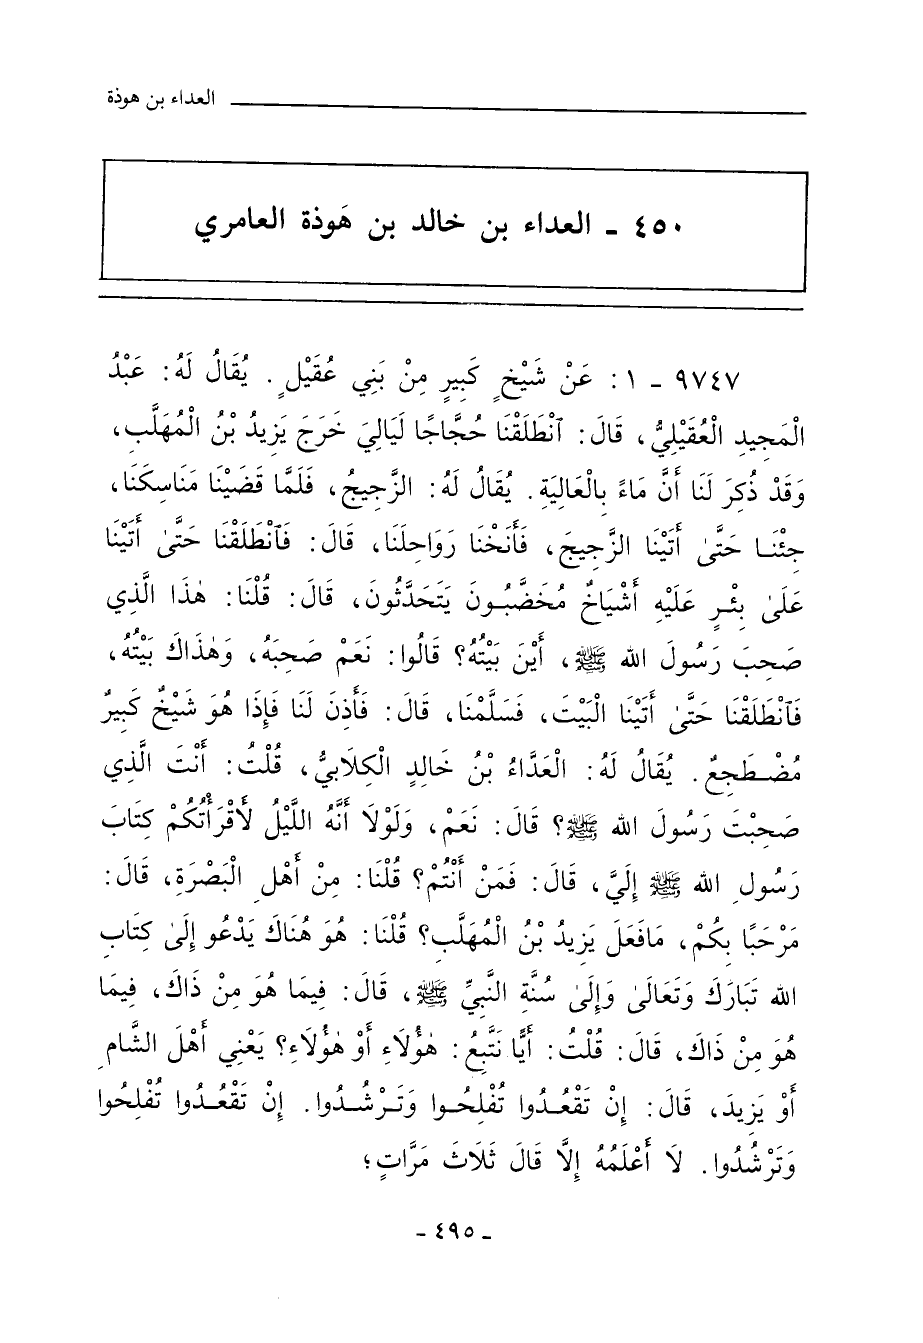 العداء بن هوذة
٤٥٠ - العداء بن خالد بن هَوذة العامري
٩٧٤٧ - ١: عَنْ شَيْخٍ كَبِيرٍ مِنْ بَنِي عُقَيْلٍ. يُقَالُ لَهُ: عَبْدُ
الْمَجِيدِ الْعُقَيْلِيُّ، قَالَ: ٱنْطَلَقْنَا حُجَّاجًا لَيَالِيَ خَرَجَ يَزِيدُ بْنُ الْمُهَلَّبِ،
وَقَدْ ذُكِرَ لَنَا أَنَّ مَاءً بِالْعَالِيَةِ. يُقَالُ لَهُ: الزَّجِيجُ، فَلَمَّا قَضَيْنَا مَنَاسِكَنَا،
جِئْنَا حَتَّىٰ أَتَيْنَا الزَّجِيجَ، فَأَنَخْنَا رَوَاحِلَنَا، قَالَ: فَٱنْطَلَقْنَا حَتَّىٰ أَتَيْنَا
عَلَىٰ بِئْرٍ عَلَيْهِ أَشْيَاخٌ مُخَضَّبُونَ يَتَحَدَّثُونَ، قَالَ: قُلْنَا: هٰذَا الَّذِي
صَحِبَ رَسُولَ الله ﷺ، أَيْنَ بَيْتُهُ؟ قَالُوا: نَعَمْ صَحِبَهُ، وَهٰذَاكَ بَيْتُهُ،
فَٱنْطَلَقْنَا حَتَّىٰ أَتَيْنَا الْبَيْتَ، فَسَلَّمْنَا، قَالَ: فَأَذِنَ لَنَا فَإِذَا هُوَ شَيْخٌ كَبِيرٌ
مُضْطَجِعٌ. يُقَالُ لَهُ: الْعَدَّاءُ بْنُ خَالِدٍ الْكِلَابِيُّ، قُلْتُ: أَنْتَ الَّذِي
صَحِبْتَ رَسُولَ الله ﷺ؟ قَالَ: نَعَمْ، وَلَوْلَا أَنَّهُ اللَّيْلُ لَأَقْرَأْتُكُمْ كِتَابَ
رَسُولِ الله ﷺ إِلَيَّ، قَالَ: فَمَنْ أَنْتُمْ؟ قُلْنَا: مِنْ أَهْلِ الْبَصْرَةِ، قَالَ:
مَرْحَبًا بِكُمْ، مَافَعَلَ يَزِيدُ بْنُ الْمُهَلَّبِ؟ قُلْنَا: هُوَ هُنَاكَ يَدْعُو إِلَىٰ كِتَابِ
الله تَبَارَكَ وَتَعَالَىٰ وَإِلَىٰ سُنَّةِ النَّبِيِّ ﷺ، قَالَ: فِيمَا هُوَ مِنْ ذَاكَ، فِيمَا
هُوَ مِنْ ذَاكَ، قَالَ: قُلْتُ: أَيًّا نَتَّبِعُ: هٰؤُلَاءِ أَوْ هٰؤُلَاءِ؟ يَعْنِي أَهْلَ الشَّامِ
أَوْ يَزِيدَ، قَالَ: إِنْ تَقْعُدُوا تُفْلِحُوا وَتَرْشُدُوا. إِنْ تَقْعُدُوا تُفْلِحُوا
وَتَرْشُدُوا. لَا أَعْلَمُهُ إِلَّا قَالَ ثَلَاثَ مَرَّاتٍ؛
- ٤٩٥ -